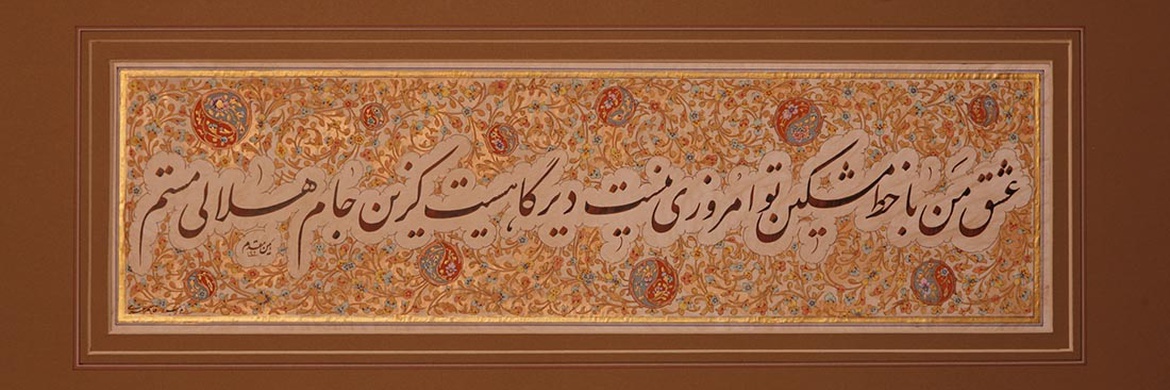 عشق من با خط مشکین تو امروزی نیست دیرگاهیست کزین جام هلالی مستم